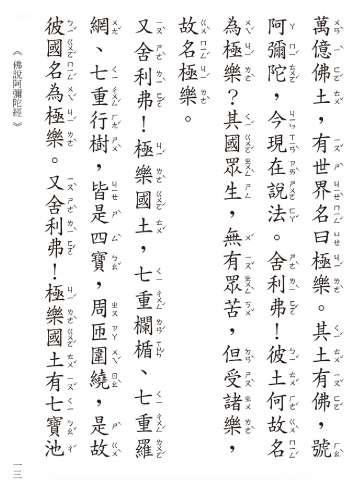 萬億佛土，有世界名曰極樂。其土有佛，號
阿彌陀，今現在說法。舍利弗！彼土何故名
為極樂？其國眾生，無有眾苦，但受諸樂，
故名極樂。
又舍利弗！極樂國土，七重欄楯、七重羅
網、七重行樹，皆是四寶，周匝圍繞，是故
彼國名為極樂。又舍利弗！極樂國土有七寶池
《佛說阿彌陀經》
一三